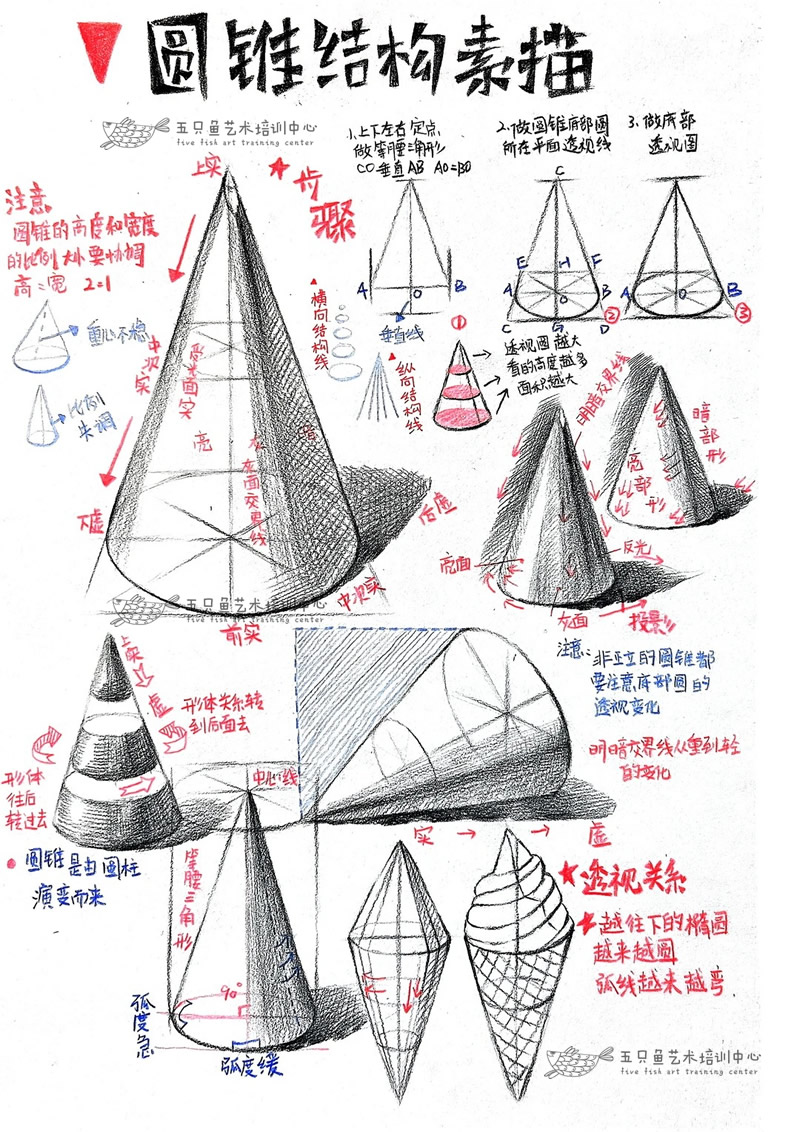 圆锥结构素描
五只鱼艺术培训中心
five fish art training center
1.上下左右定点
做等腰三角形
CO垂直AB AO=BO
2.做圆锥底部圆
所在平面透视线
3.做底部
透视图
步骤
上实
注意
圆锥的高度和宽度
的比例大小要协调
高:宽 2=1
重心不稳
比例
失调
中次实
受光面实
亮
灰
暗
灰面交界线
下虚
后虚
中次实
前实
横向结构线
纵向结构线
A
O
B
垂直线
①
C
E
H
F
A
O
B
C
G
D
②
A
O
B
③
透视圆越大
看的高度越多
面积越大
明暗交界线
暗部形
亮部形
亮面
反光
灰面
投影
五只鱼艺术培训中心
five fish art training center
注意:非正立的圆锥都
要注意底部圆的
透视变化
明暗交界线从重到轻
的变化
上实
虚
形体关系转
到后面去
形体
往后
转过去
圆锥是由圆柱
演变而来
中心线
等腰三角形
90°
弧度急
弧度缓
实
虚
透视关系
越往下的椭圆
越来越圆
弧线越来越弯
五只鱼艺术培训中心
five fish art training center